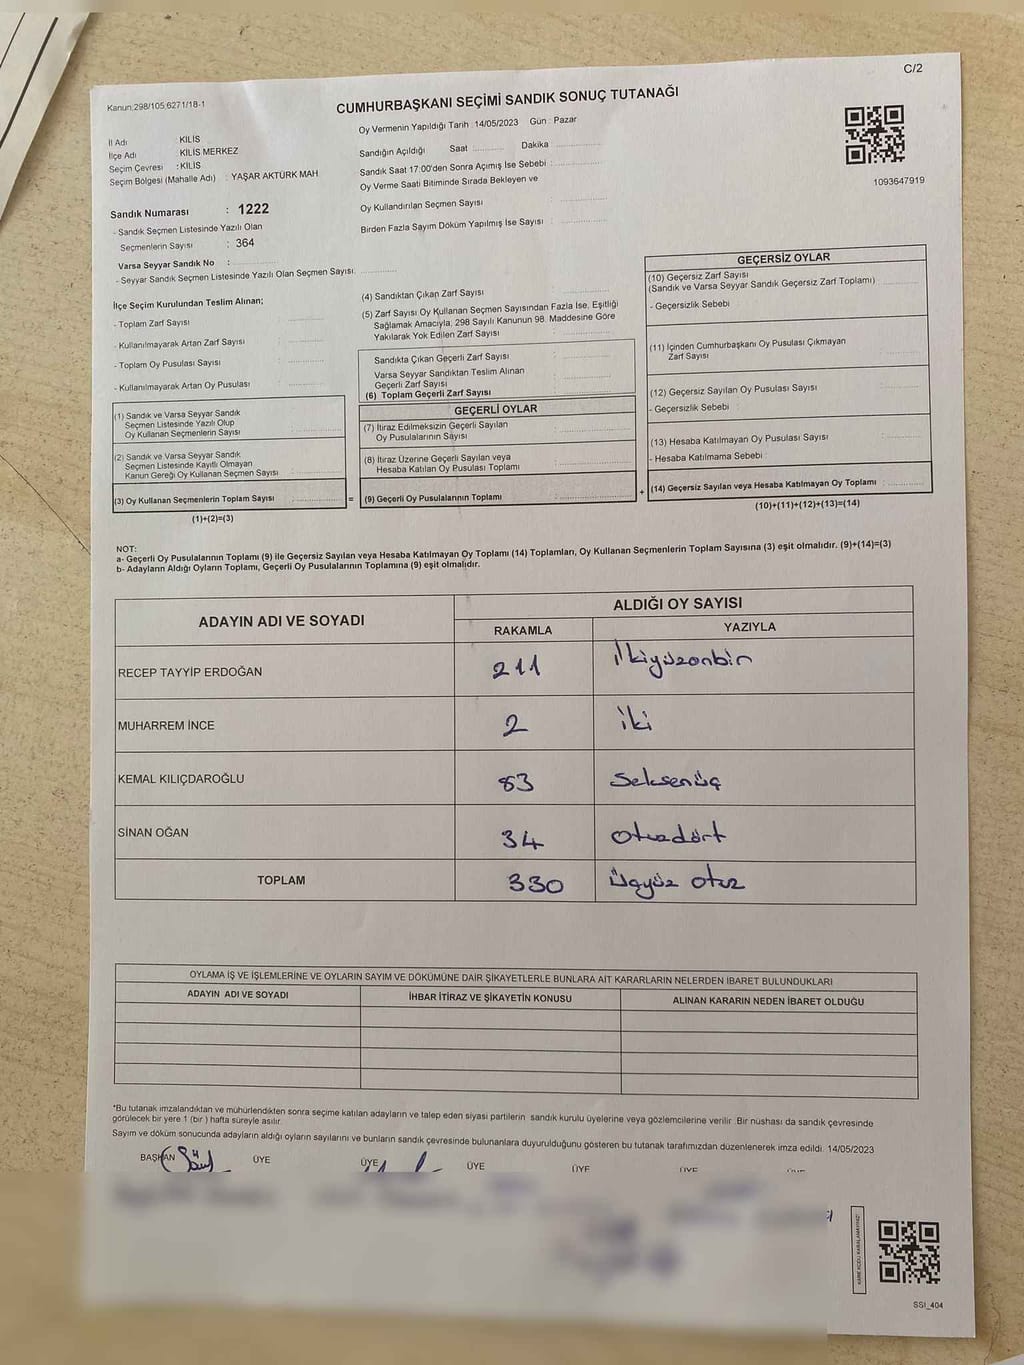 C/2
Kanun:298/105;6271/18-1
CUMHURBAŞKANI SEÇİMİ SANDIK SONUÇ TUTANAĞI
Oy Vermenin Yapıldığı Tarih :14/05/2023 Gün : Pazar
İl Adı : KİLİS
İlçe Adı : KİLİS MERKEZ
Seçim Çevresi : KİLİS
Seçim Bölgesi (Mahalle Adı) : YAŞAR AKTÜRK MAH
Sandığın Açıldığı Saat ........... Dakika ...............
Sandık Saat 17:00'den Sonra Açımış İse Sebebi : ...............
Oy Verme Saati Bitiminde Sırada Bekleyen ve
Oy Kullandırılan Seçmen Sayısı : ...............
Birden Fazla Sayım Döküm Yapılmış İse Sayısı : ...............
1093647919
Sandık Numarası : 1222
- Sandık Seçmen Listesinde Yazılı Olan
Seçmenlerin Sayısı : 364
Varsa Seyyar Sandık No : ...............
- Seyyar Sandık Seçmen Listesinde Yazılı Olan Seçmen Sayısı: ...............
İlçe Seçim Kurulundan Teslim Alınan;
- Toplam Zarf Sayısı ...............
- Kullanılmayarak Artan Zarf Sayısı ...............
- Toplam Oy Pusulası Sayısı ...............
- Kullanılmayarak Artan Oy Pusulası ...............
(1) Sandık ve Varsa Seyyar Sandık
Seçmen Listesinde Yazılı Olup
Oy Kullanan Seçmenlerin Sayısı : ...............
(2) Sandık ve Varsa Seyyar Sandık
Seçmen Listesinde Kayıtlı Olmayan
Kanun Gereği Oy Kullanan Seçmen Sayısı : ...............
(3) Oy Kullanan Seçmenlerin Toplam Sayısı : ...............
(1)+(2)=(3)
=
(4) Sandıktan Çıkan Zarf Sayısı : ...............
(5) Zarf Sayısı Oy Kullanan Seçmen Sayısından Fazla İse, Eşitliği
Sağlamak Amacıyla, 298 Sayılı Kanunun 98. Maddesine Göre
Yakılarak Yok Edilen Zarf Sayısı : ...............
Sandıkta Çıkan Geçerli Zarf Sayısı : ...............
Varsa Seyyar Sandıktan Teslim Alınan
Geçerli Zarf Sayısı : ...............
(6) Toplam Geçerli Zarf Sayısı : ...............
GEÇERLİ OYLAR
(7) İtiraz Edilmeksizin Geçerli Sayılan
Oy Pusulalarının Sayısı : ...............
(8) İtiraz Üzerine Geçerli Sayılan veya
Hesaba Katılan Oy Pusulası Toplamı : ...............
(9) Geçerli Oy Pusulalarının Toplamı : ...............
+
GEÇERSİZ OYLAR
(10) Geçersiz Zarf Sayısı
(Sandık ve Varsa Seyyar Sandık Geçersiz Zarf Toplamı) : ...............
- Geçersizlik Sebebi :
(11) İçinden Cumhurbaşkanı Oy Pusulası Çıkmayan
Zarf Sayısı : ...............
(12) Geçersiz Sayılan Oy Pusulası Sayısı : ...............
- Geçersizlik Sebebi :
(13) Hesaba Katılmayan Oy Pusulası Sayısı : ...............
- Hesaba Katılmama Sebebi :
(14) Geçersiz Sayılan veya Hesaba Katılmayan Oy Toplamı : ...............
(10)+(11)+(12)+(13)=(14)
NOT:
a- Geçerli Oy Pusulalarının Toplamı (9) ile Geçersiz Sayılan veya Hesaba Katılmayan Oy Toplamı (14) Toplamları, Oy Kullanan Seçmenlerin Toplam Sayısına (3) eşit olmalıdır. (9)+(14)=(3)
b- Adayların Aldığı Oyların Toplamı, Geçerli Oy Pusulalarının Toplamına (9) eşit olmalıdır.
ADAYIN ADI VE SOYADI ALDIĞI OY SAYISI
RAKAMLA YAZIYLA
RECEP TAYYİP ERDOĞAN 211 ikiyüzonbir
MUHARREM İNCE 2 iki
KEMAL KILIÇDAROĞLU 83 Seksenüç
SİNAN OĞAN 34 otuzdört
TOPLAM 330 üçyüz otuz
OYLAMA İŞ VE İŞLEMLERİNE VE OYLARIN SAYIM VE DÖKÜMÜNE DAİR ŞİKAYETLERLE BUNLARA AİT KARARLARIN NELERDEN İBARET BULUNDUKLARI
ADAYIN ADI VE SOYADI İHBAR İTİRAZ VE ŞİKAYETİN KONUSU ALINAN KARARIN NEDEN İBARET OLDUĞU
*Bu tutanak imzalandıktan ve mühürlendikten sonra seçime katılan adayların ve talep eden siyasi partilerin sandık kurulu üyelerine veya gözlemcilerine verilir. Bir nüshası da sandık çevresinde
görülecek bir yere 1 (bir ) hafta süreyle asılır.
Sayım ve döküm sonucunda adayların aldığı oyların sayılarını ve bunların sandık çevresinde bulunanlara duyurulduğunu gösteren bu tutanak tarafımızdan düzenlenerek imza edildi. 14/05/2023
BAŞKAN ÜYE ÜYE ÜYE ÜYE ÜYE
SSI_404